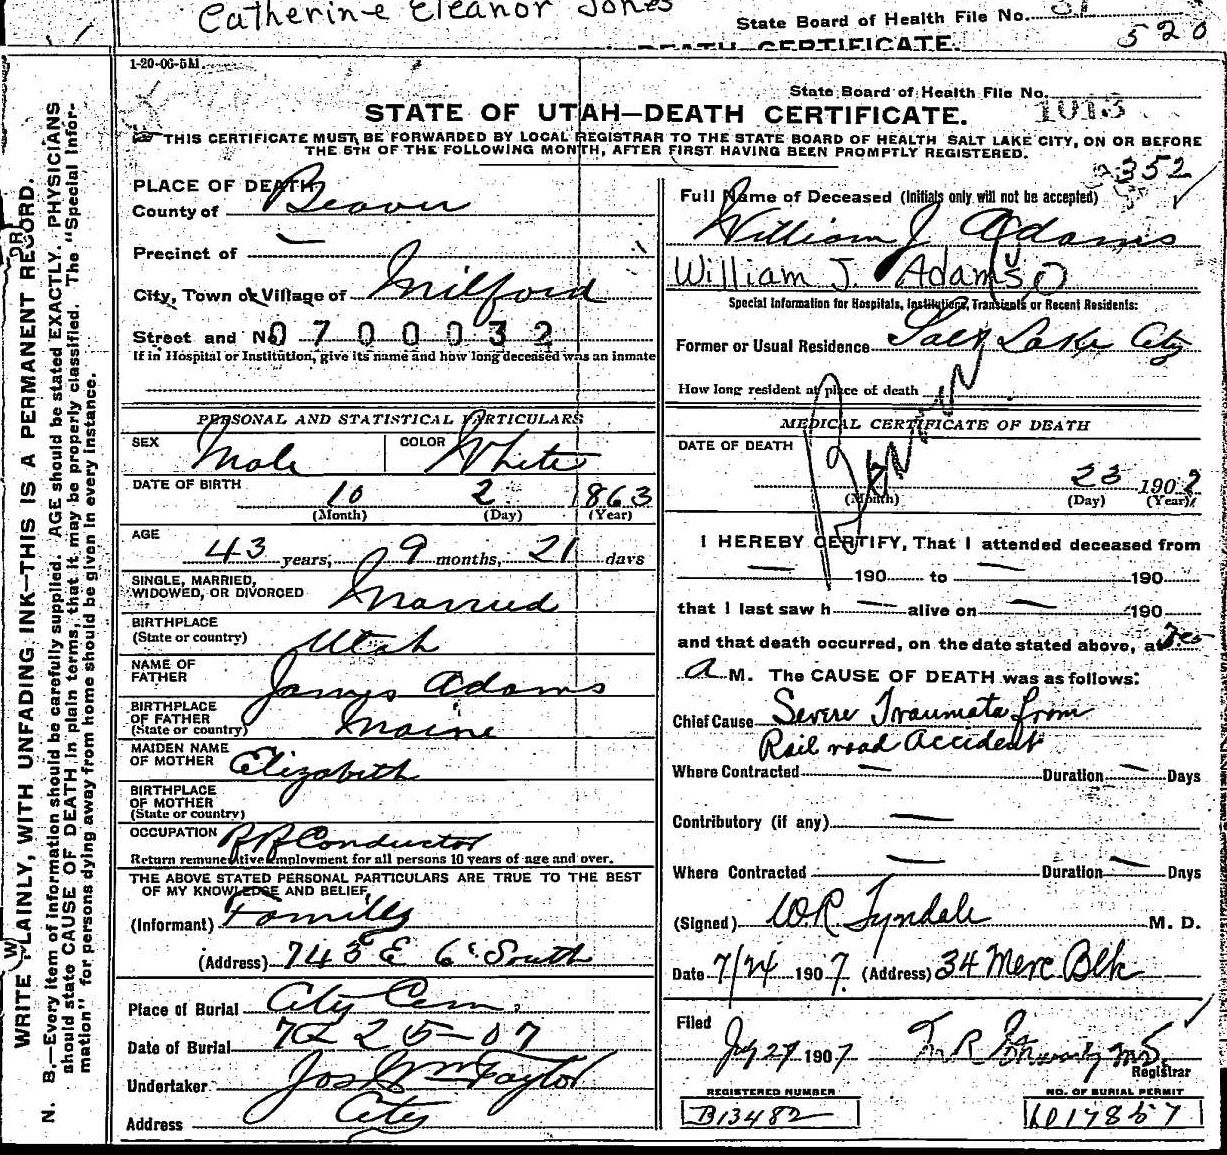 Catherine Eleanor Jones
State Board of Health File No.
520
DEATH CERTIFICATE.
1-20-06-5M.
State Board of Health File No. 1013
STATE OF UTAH—DEATH CERTIFICATE.
THIS CERTIFICATE MUST BE FORWARDED BY LOCAL REGISTRAR TO THE STATE BOARD OF HEALTH SALT LAKE CITY, ON OR BEFORE
THE 5TH OF THE FOLLOWING MONTH, AFTER FIRST HAVING BEEN PROMPTLY REGISTERED.
352
WRITE PLAINLY, WITH UNFADING INK—THIS IS A PERMANENT RECORD.
N. B.—Every item of information should be carefully supplied. AGE should be stated EXACTLY. PHYSICIANS
should state CAUSE OF DEATH in plain terms, that it may be properly classified. The "Special Infor-
mation" for persons dying away from home should be given in every instance.
PLACE OF DEATH
County of Beaver
Precinct of —
City, Town or Village of Milford
Street and No. 0700032
If in Hospital or Institution, give its name and how long deceased was an inmate
PERSONAL AND STATISTICAL PARTICULARS
SEX Male COLOR White
DATE OF BIRTH 10 2 1863
(Month) (Day) (Year)
AGE 43 years, 9 months, 21 days
SINGLE, MARRIED,
WIDOWED, OR DIVORCED Married
BIRTHPLACE
(State or country) Utah
NAME OF
FATHER James Adams
BIRTHPLACE
OF FATHER
(State or country) Maine
MAIDEN NAME
OF MOTHER Elizabeth
BIRTHPLACE
OF MOTHER
(State or country)
OCCUPATION RR Conductor
Return remunerative employment for all persons 10 years of age and over.
THE ABOVE STATED PERSONAL PARTICULARS ARE TRUE TO THE BEST
OF MY KNOWLEDGE AND BELIEF,
(Informant) Family
(Address) 743 E 6 South
Place of Burial City Cem.
Date of Burial 7-25-07
Undertaker Jos Wm Taylor
Address City
Full Name of Deceased (Initials only will not be accepted)
William J Adams
William J. Adams
Special Information for Hospitals, Institutions, Transients or Recent Residents:
Former or Usual Residence Salt Lake City
How long resident at place of death
MEDICAL CERTIFICATE OF DEATH
DATE OF DEATH
7 23 1907
(Month) (Day) (Year)
I HEREBY CERTIFY, That I attended deceased from
— 190 to — 190
that I last saw h — alive on — 190
and that death occurred, on the date stated above, at
A M. The CAUSE OF DEATH was as follows:
Chief Cause Severe Traumata from
Rail road Accident
Where Contracted — Duration — Days
Contributory (if any) —
Where Contracted — Duration — Days
(Signed) W.R. Tyndale M. D.
Date 7/24 1907. (Address) 34 Merc Blk
Filed
July 27 1907
Registrar
REGISTERED NUMBER
B13482
NO. OF BURIAL PERMIT